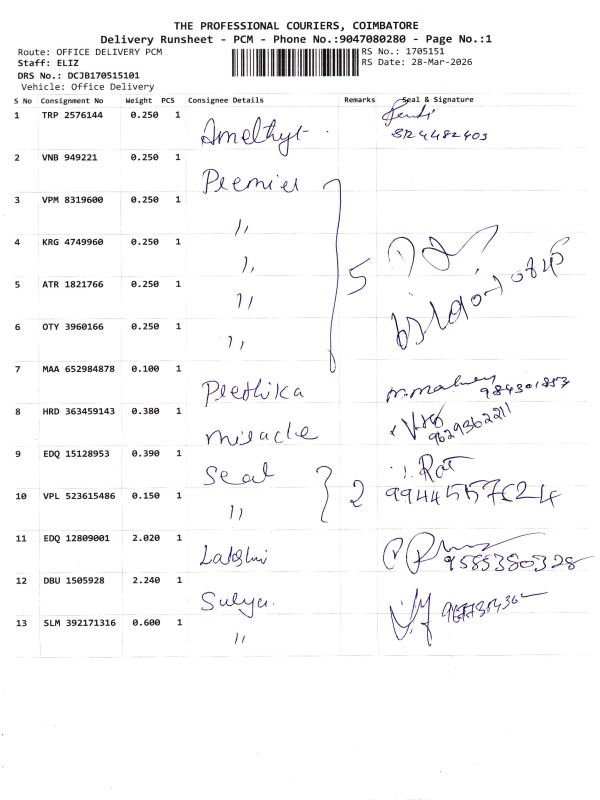 THE PROFESSIONAL COURIERS, COIMBATORE
Delivery Runsheet - PCM - Phone No.:9047080280 - Page No.:1
Route: OFFICE DELIVERY PCM
RS No.: 1705151
Staff: ELIZ
RS Date: 28-Mar-2026
DRS No.: DCJB170515101
Vehicle: Office Delivery
S No Consignment No Weight PCS Consignee Details Remarks Seal & Signature
1 TRP 2576144 0.250 1 Amethyst
8124482403
2 VNB 949221 0.250 1 Premier
3 VPM 8319600 0.250 1 ,,
4 KRG 4749960 0.250 1 ,, 5
5 ATR 1821766 0.250 1 ,,
6 OTY 3960166 0.250 1 ,,
7 MAA 652984878 0.100 1 Preethika
8 HRD 363459143 0.380 1 Miracle 9629362211
9 EDQ 15128953 0.390 1 Seal
10 VPL 523615486 0.150 1 ,, 2
11 EDQ 12809001 2.020 1 Lakshmi 9585380328
12 DBU 1505928 2.240 1 Surya
13 SLM 392171316 0.600 1 ,,